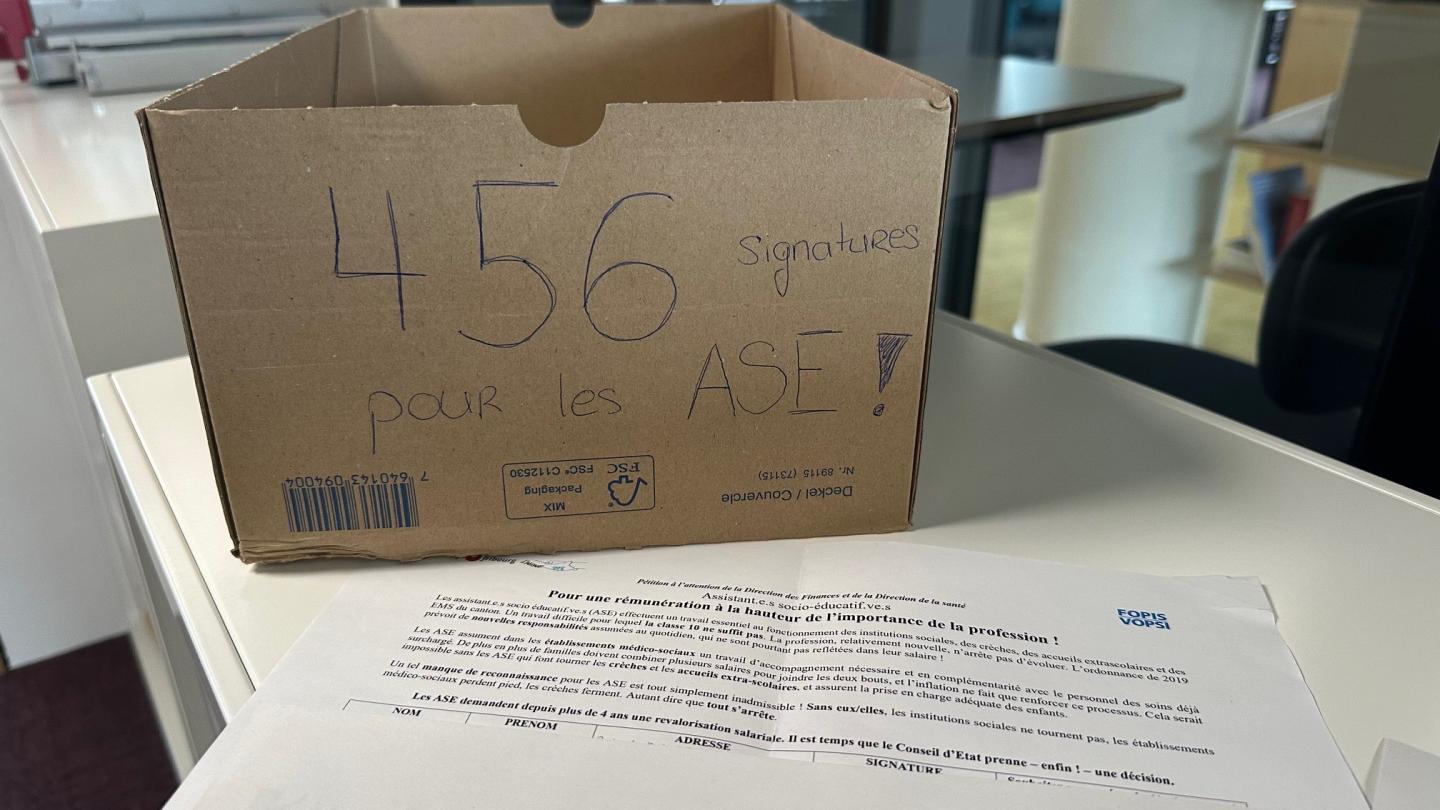 456 signatures
pour les ASE !
7 640143 094004
MIX
Packaging
FSC
FSC® C112530
Deckel / Couvercle
Nr. 89115 (73115)
Pétition à l'attention de la Direction des Finances et de la Direction de la santé
Assistant.e.s socio-éducatif.ve.s
Pour une rémunération à la hauteur de l'importance de la profession !
FOPIS
VOPSI
Les assistant.e.s socio éducatif.ve.s (ASE) effectuent un travail essentiel au fonctionnement des institutions sociales, des crèches, des accueils extrascolaires et des
EMS du canton. Un travail difficile pour lequel la classe 10 ne suffit pas. La profession, relativement nouvelle, n'arrête pas d'évoluer. L'ordonnance de 2019
prévoit de nouvelles responsabilités assumées au quotidien, qui ne sont pourtant pas reflétées dans leur salaire !
Les ASE assument dans les établissements médico-sociaux un travail d'accompagnement nécessaire et en complémentarité avec le personnel des soins déjà
surchargé. De plus en plus de familles doivent combiner plusieurs salaires pour joindre les deux bouts, et l'inflation ne fait que renforcer ce processus. Cela serait
impossible sans les ASE qui font tourner les crèches et les accueils extra-scolaires, et assurent la prise en charge adéquate des enfants.
Un tel manque de reconnaissance pour les ASE est tout simplement inadmissible ! Sans eux/elles, les institutions sociales ne tournent pas, les établissements
médico-sociaux perdent pied, les crèches ferment. Autant dire que tout s'arrête.
Les ASE demandent depuis plus de 4 ans une revalorisation salariale. Il est temps que le Conseil d'Etat prenne – enfin ! – une décision.
NOM PRENOM ADRESSE SIGNATURE